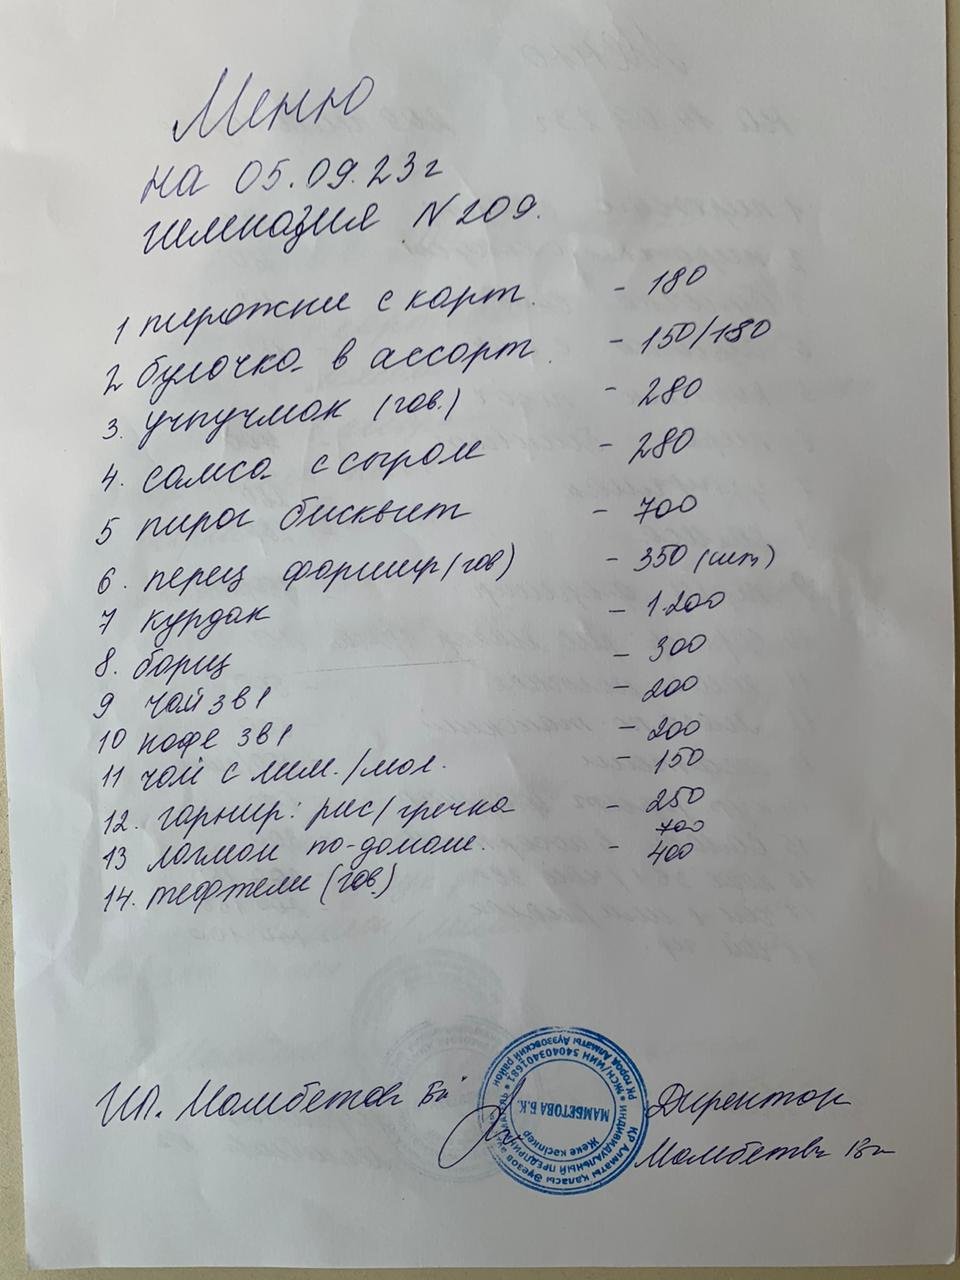 Меню
на 05.09.23г
гимназия N209.
1 пирожки с карт. - 180
2 булочка в ассорт. - 150/180
3. учпучмак (гов.) - 280
4. самса с сыром - 280
5 пирог бисквит - 700
6. перец фаршир (гов) - 350 (шт)
7 курдак - 1.200
8. борщ - 300
9 чай 3в1 - 200
10 кофе 3в1 - 200
11 чай с лим./мол. - 150
12. гарнир: рис/гречка - 250
13 лагман по-домаш. - 700
14. тефтели (гов) 400
ИП. Мамбетова Директор
Мамбетова
КР Алматы қаласы Әуезов
РК город Алматы Ауэзовский район
ИНДИВИДУАЛЬНЫЙ ПРЕДПРИНИМАТЕЛЬ
ЖСН/ИИН 540403401681
Жеке кәсіпкер
МАМБЕТОВА Б.К.